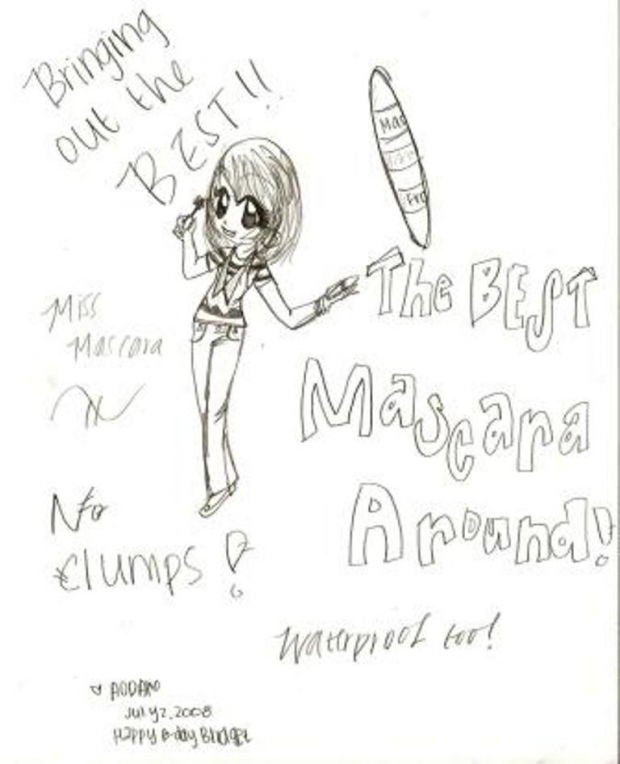 Bringing
out the
BEST!!
Mas
The BEST
Mascara
Around!
Miss
Mascara
No
clumps!
Waterproof too!
July 2, 2008
Happy B-day